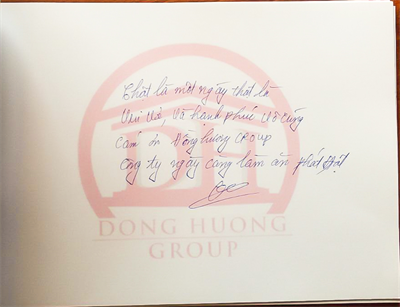 Thật là một ngày thật là
Vui vẻ, và hạnh phúc vô cùng
cảm ơn Đông hương GROUP
công ty ngày càng làm ăn phát đạt
DONG HUONG
GROUP